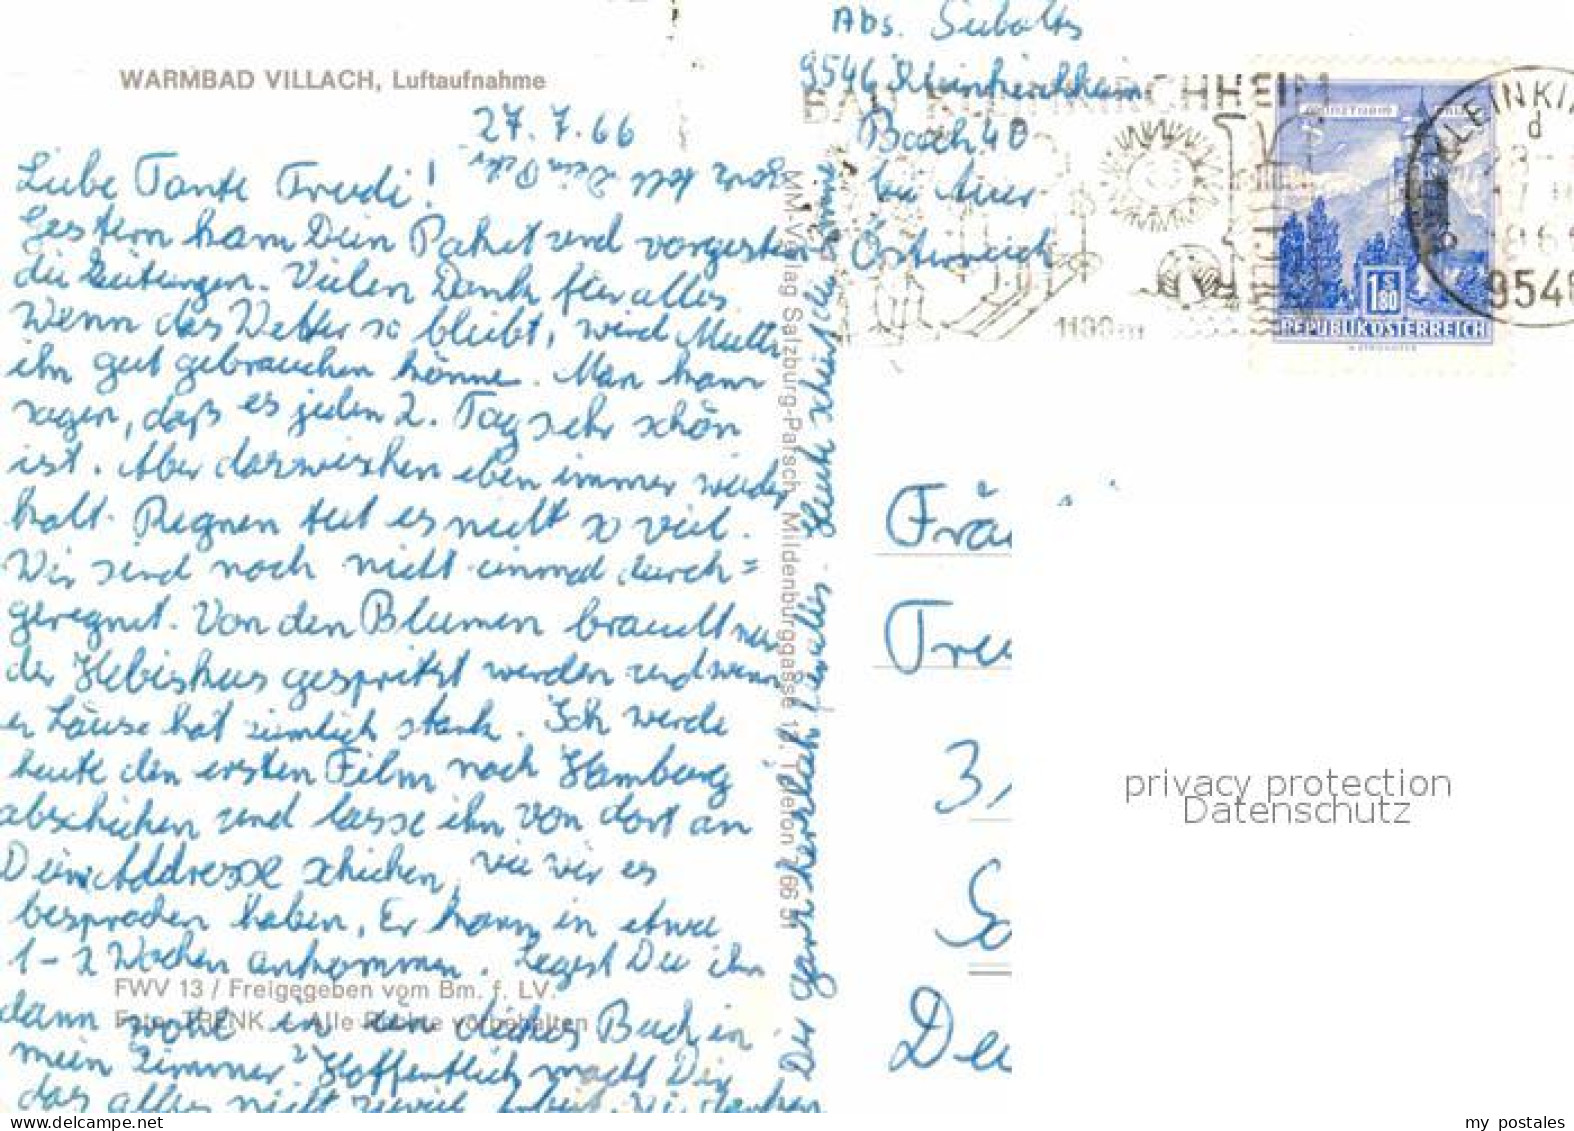 WARMBAD VILLACH, Luftaufnahme
27.7.66
Liebe Tante Trudi!
Gestern kam Dein Paket und vorgestern
die Zeitungen. Vielen Dank für alles
Wenn das Wetter so bleibt, wird Mutti
ihn gut gebrauchen könne. Man kann
sagen, daß es jeden 2. Tag sehr schön
ist. Aber dazwischen eben immer wieder
kalt. Regnen tut es nicht so viel.
Wir sind noch nicht einmal durch=
geregnet. Von den Blumen braucht nur
der Hebiskus gespritzt werden und wenn
er Läuse hat ziemlich stark. Ich werde
heute den ersten Film nach Hamburg
abschicken und lasse ihn von dort an
Deine Addresse schicken, wie wir es
besprochen haben. Er kann in etwa
1-2 Wochen ankommen. Legst Du ihn
FWV 13 / Freigegeben vom Bm. f. LV.
dann in ein dickes Buch in
Foto: TRENK — Alle Rechte vorbehalten
mein Zimmer? Hoffentlich macht Dir
das alles nicht zuviel Arbeit. Wir danken
Dir ganz herzlich für alles. Heute scheint die Sonne
MM-Verlag Salzburg-Parsch, Mildenburggasse
Abs. Siebolts
9546 Kleinkirchheim
Bach 40
Österreich
BAD KLEINKIRCHHEIM
1100m
KLEINKI
d
9546
1 S 80
REPUBLIK ÖSTERREICH
Fräu
Tru
3
De
privacy protection
Datenschutz
delcampe.net
my_postales